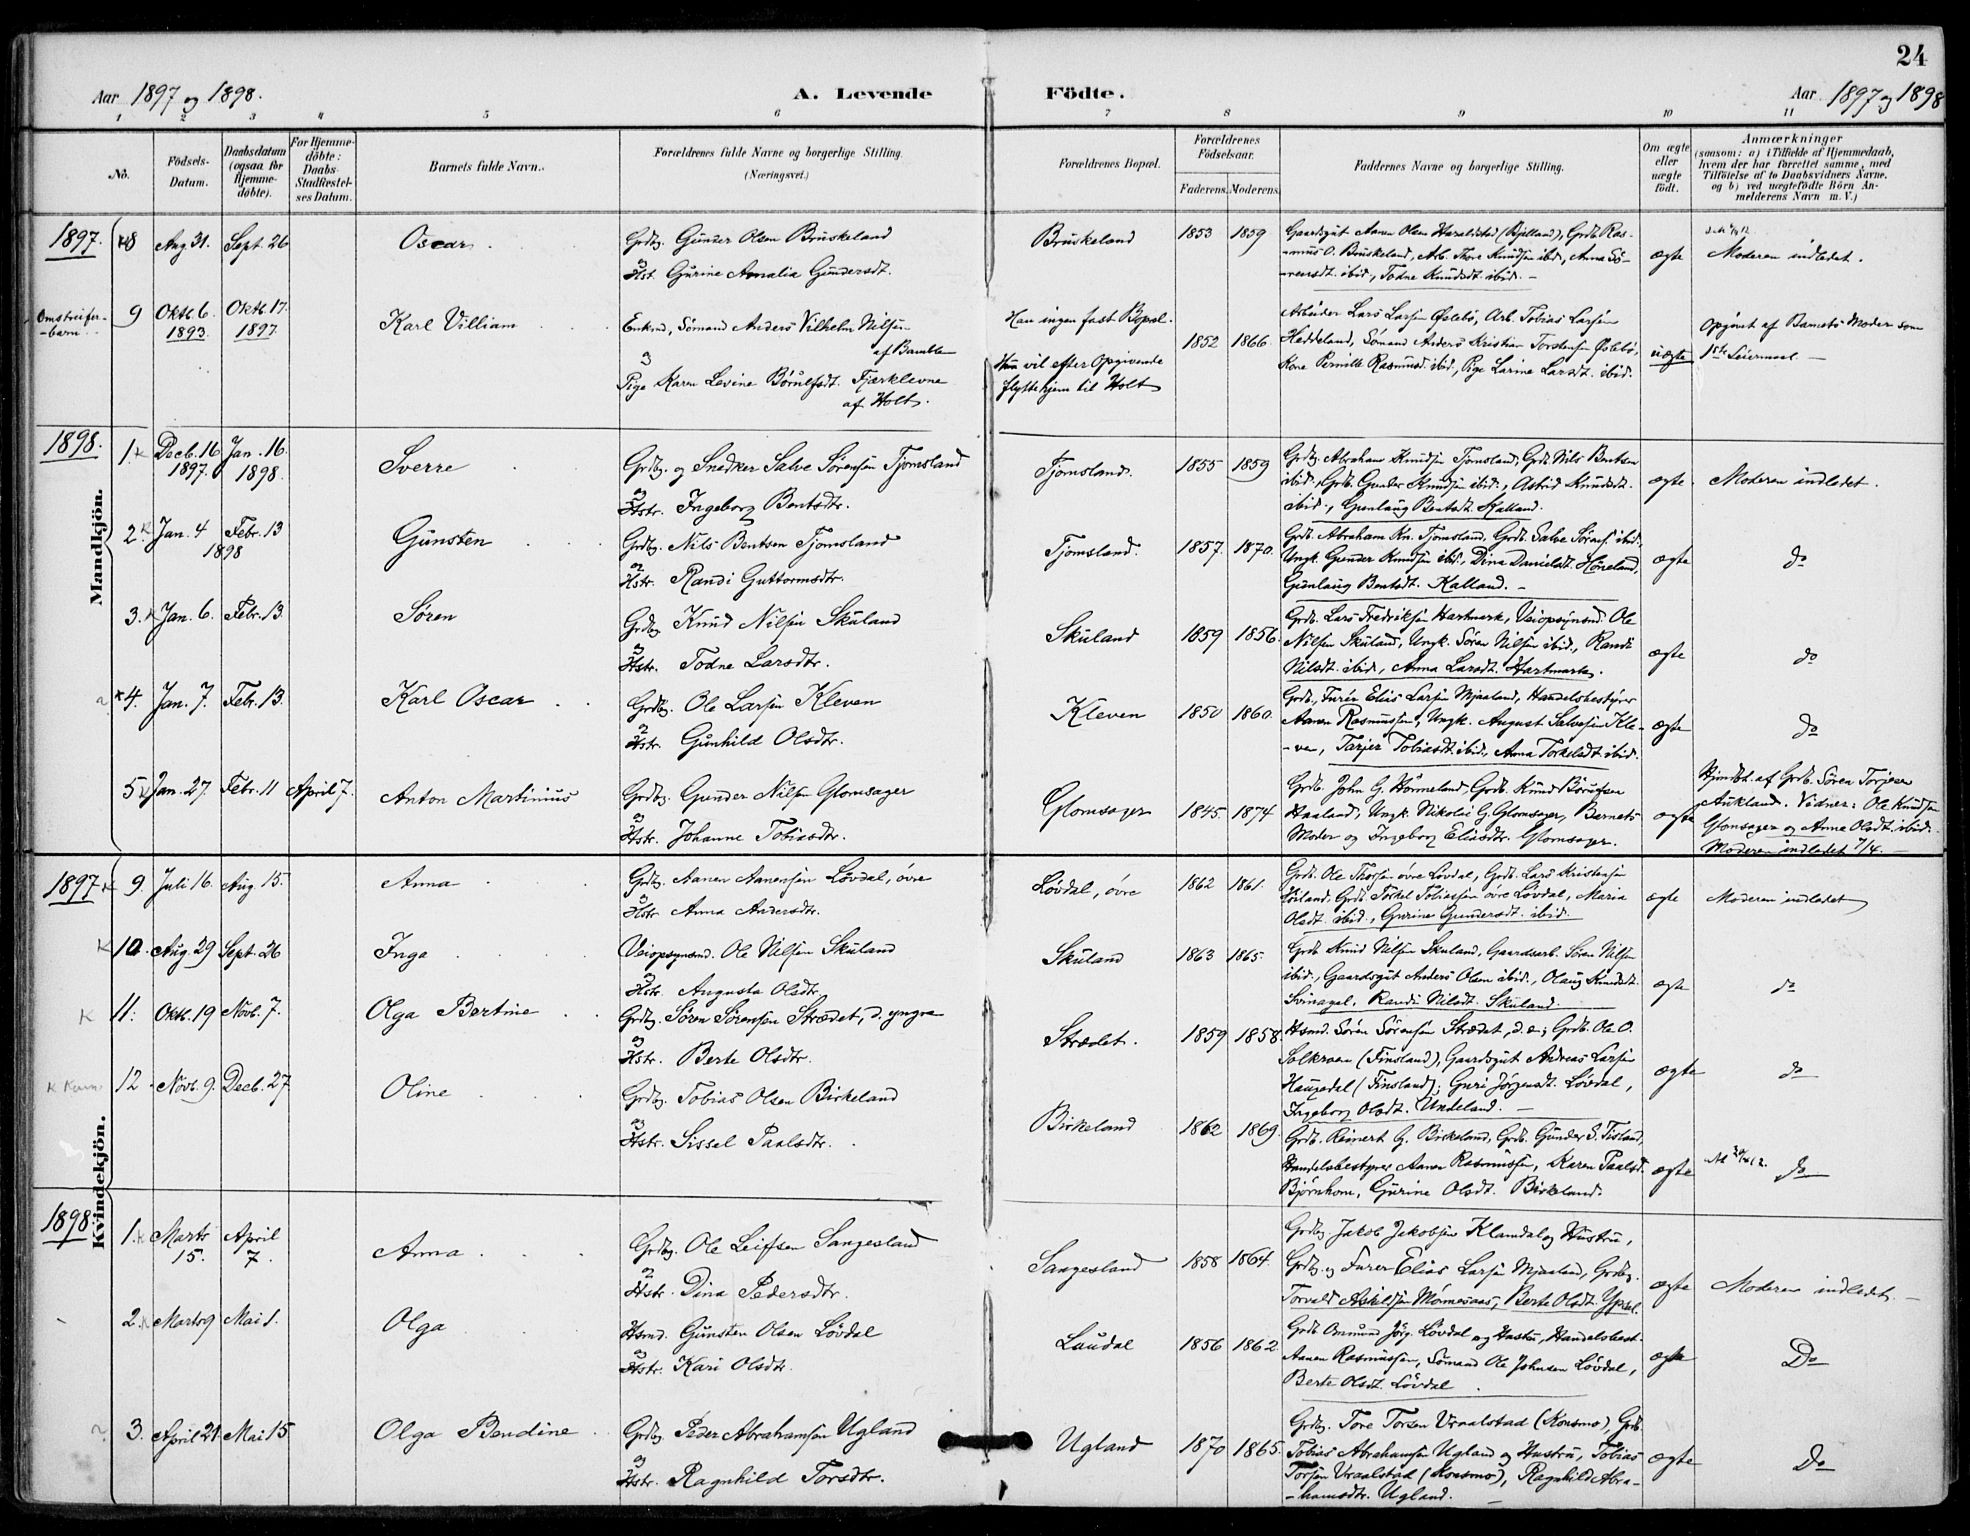 24
Aar 1897 og 1898.
A. Levende Födte.
Aar 1897 og 1898
1 2 3 4 5 6 7 8 9 10 11
No.
Födsels-Datum.
Daabsdatum (ogsaa for Hjemme-döbte).
For Hjemme-döbte: Daabs-Stadfæstel-ses Datum.
Barnets fulde Navn.
Forældrenes fulde Navne og borgerlige Stilling.
(Næringsvei.)
Forældrenes Bopæl.
Forældrenes Födselsaar.
Faderens. Moderens.
Faddernes Navne og borgerlige Stilling.
Om ægte eller uægte födt.
Anmærkninger
(saasom: a) i Tilfælde af Hjemmedaab, hvem der har forrettet samme, med Tilföielse af to Daabsvidners Navne, og b) ved uægtefödte Börn An-melderens Navn m. V.)
Mandkjön.
1897. 8 Aug. 31. Sept. 26 Oscar
Grdbg. Gunder Olsen Bruskeland
og
Hst. Gurine Amalia Gundersdt.
Bruskeland 1853 1859
Gaardsgut Aanen Olsen (Bjelland), Grdb. Ras-
-mus O. Bruskeland, Arb. Tore Knudsen ibid., Anna Sö-
rensdt ibid., Todne Knudsdt. ibid. -
ægte Moderen indledet.
Omstreifer-
-barn
9 Oktb. 6. 1893. Oktb. 17. 1897. Karl Villiam
Enkmd., Sömand Anders Vilhelm Nilsen
af Bamble
og
Pige Karen Levine Börulfsdt. Fjærklevne
af Holt.
Har ingen fast Bopæl.
Hun vil efter Opgivende
flytte hjem til Holt
1852 1866.
Arbeider Lars Larsen Øslebö, Arb. Tobias Larsen
Heddeland, Sömand Anders Kristian Torstensen Øslebö,
Kone Pernille Rasmusd. ibid., Pige Larine Larsdt. ibid.
uægte
Opgivet af Barnets Moder som
1ste Leiermaal -
1898.
1. Decb. 16 1897. Jan. 16. 1898. Sverre
Grdbg. og Snedker Salve Sörensen Tjomsland
og
Hstr. Ingeborg Bentsdtr.
Tjomsland. 1855 1859
Grdbg. Abraham Knudsen Tjomsland, Grdb. Nils Bentsen
ibid., Grdb. Gunder Knudsen ibid., Astrid Knudsdt.
ibid., Gunlaug Bentsdt. Kalland.
ægte Moderen indledet.
2. Jan. 4 Febr. 13 1898 Gunsten
Grdbg. Nils Bentsen Tjomsland
og
Hstr. Randi Guttormsdtr.
Tjomsland. 1857. 1870.
Grdb. Abraham Kn. Tjomsland, Grdb. Salve Sörens. ibid.,
Ungk. Gunder Knudsen ibid., Dina Danielsdt. Höneland,
Gunlaug Bentsdt. Kalland. -
ægte do
3. Jan. 6. Febr. 13. Sören
Grdbg. Knud Nilsen Skuland
og
Hstr. Todne Larsdtr.
Skuland 1859 1856.
Grdb. Lars Fredriksen Hartmark, Veiopsynsmd. Ole
Nilsen Skuland, Ungk. Sören Nilsen ibid., Randi
Nilsdt. ibid., Anna Larsdt. Hartmark.
ægte do
4. Jan. 7. Febr. 13. Karl Oscar
Grdbg. Ole Larsen Kleven
og
Hstr. Gunhild Olsdtr.
Kleven 1850 1860.
Grdb., Furér Elias Larsen Mjaaland, Handelsbestyrer
Aanen Rasmussen, Ungk. August Salvesen Kle-
-ven, Tarjer Tobiasdt. ibid., Anna Torkelsdt. ibid.
ægte do
5 Jan. 27. Febr. 11 April 7. Anton Martinius
Grdbg. Gunder Nilsen Glomsager
og
Hstr. Johanne Tobiasdtr.
Glomsager 1845. 1874
Grdb. John G. Hönneland, Grdb. Knud Börufsen
Haaland, Ungk. Nikolai G. Glomsager, Barnets
Moder og Ingeborg Eliasdtr. Glomsager.
ægte
Hjmdbt. af Grdb. Sören Torjesen
Aukland. Vidner: Ole Knudsen
Glomsager og Anne Olsdt. ibid.
Moderen indledet 7/4. -
Kvindekjön.
1897 9. Juli 16. Aug. 15. Anna
Grdbg. Aanen Aanensen Lövdal, övre
og
Hstr. Anna Andersdtr.
Lövdal, övre 1862 1861.
Grdb. Ole Thorsen övre Lövdal, Grdb. Lars Kristensen
Grdb. Torkel Tobiassen övre Lövdal, Maria
Olsdt. ibid., Gurine Gundersdt. ibid.
ægte Moderen indledet
10. Aug. 29 Sept. 26 Inga
Veiopsynsmd. Ole Nilsen Skuland
og
Hstr. Augusta Olsdtr.
Skuland 1863 1865.
Grdb. Knud Nilsen Skuland, Gaardsarb. Sören Nilsen
ibid., Gaardsgut Anders Olsen ibid., Olaug Knudsdt.
Svinagel, Randi Nilsdt. Skuland.
ægte do
11. Oktb. 19 Novb. 7. Olga Bertine
Grdbg. Sören Sörensen Strædet, d. yngre
og
Hstr. Berte Olsdtr.
Strædet. 1859 1858.
Hsmd. Sören Sörensen Strædet, d. e.; Grdb. Ole O.
Solkraaen (Finsland), Gaardsgut Andreas Larsen
Haugedal (Finsland); Guri Jörgensdt. Lövdal,
Ingeborg Olsdt. Undeland. -
ægte do
12. Novb. 9. Decb. 27 Oline
Grdbg. Tobias Olsen Birkeland
og
Hstr. Sissel Paalsdtr.
Birkeland 1862 1869.
Grdb. Reinert G. Birkeland, Grdb. Gunder S. Fisland,
Handelsbestyrer Aanen Rasmussen, Karen Paalsd.
Björnhom, Gurine Olsdt. Birkeland.
ægte do
1898
1. Marts 15. April 7. Anna
Grdbg. Ole Leifsen Sangesland
og
Hstr. Dina Pedersdtr.
Sangesland 1858 1864.
Grdbg. Jakob Jakobsen Klamdal og Hustru,
Grdbg. og Furer Elias Larsen Mjaaland, Grdbg.
Torvald Askildsen Mönnesaas, Berte Olsdt. Ypsel.
ægte Moderen indledet. -
2. Marts 9 Mai 1. Olga
Hsmd. Gunsten Olsen Lövdal
og
Hstr. Kari Olsdtr.
Laudal 1856 1862
Grdb. Omund Jörg. Lövdal og Hustru, Handelsbest.
Aanen Rasmussen, Sömand Ole Johnsen Lövdal,
Berte Olsdt. Lövdal.
ægte Do
3. April 21. Mai 15 Olga Bendine
Grdbg. Peder Abrahamsen Ugland
og
Hstr. Ragnhild Torsdtr.
Ugland 1870 1865.
Grdbg. Tore Torsen Vraalstad (Konsmo), Grdb.
Tobias Abrahamsen Ugland og Hustru, Tobias
Torsen Vraalstad (Konsmo), Ragnhild Abra-
-hamsdtr. Ugland. -
ægte Do